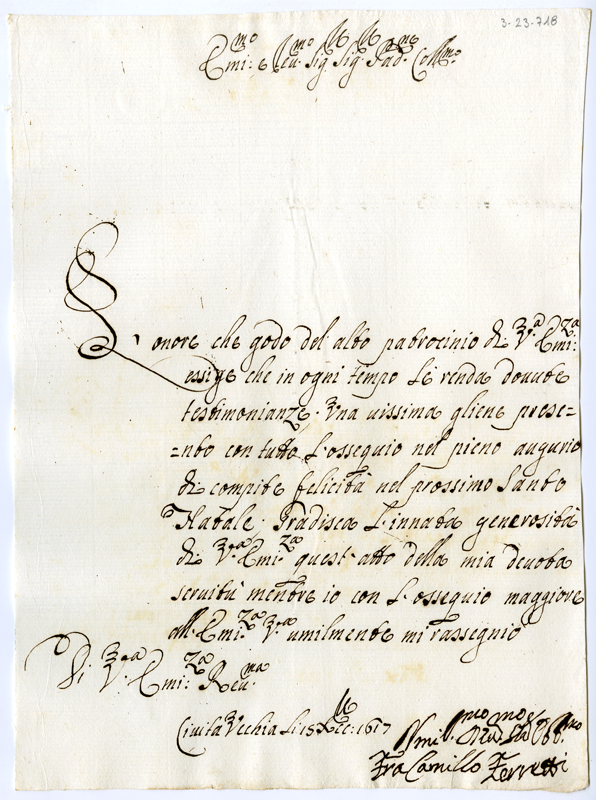 3-23-718
Emi:mo e Reu:mo Sig.r Sig.r Pad:ne Coll:mo
L'onore che godo del alto patrocinio di V:ra Emi:za
essige che in ogni tempo Le renda douute
testimonianze. Vna uissima gliene prese=
=nto con tutto L'osseguio nel pieno augurio
di compite felicità nel prossimo Santo
Natale. Gradisca L'innata generosità
di V:ra Emi:za quest'atto della mia deuota
seruitù mentre io con L'osseguio maggiore
all'Emi:za V:ra umilmente mi rassegnio
Di V:ra Emi:za Reu:ma
Ciuita Vechia Li 15 Xbre: 1617
Vmil:mo Deuo:mo Obb:mo
Fra Camillo Ferretti